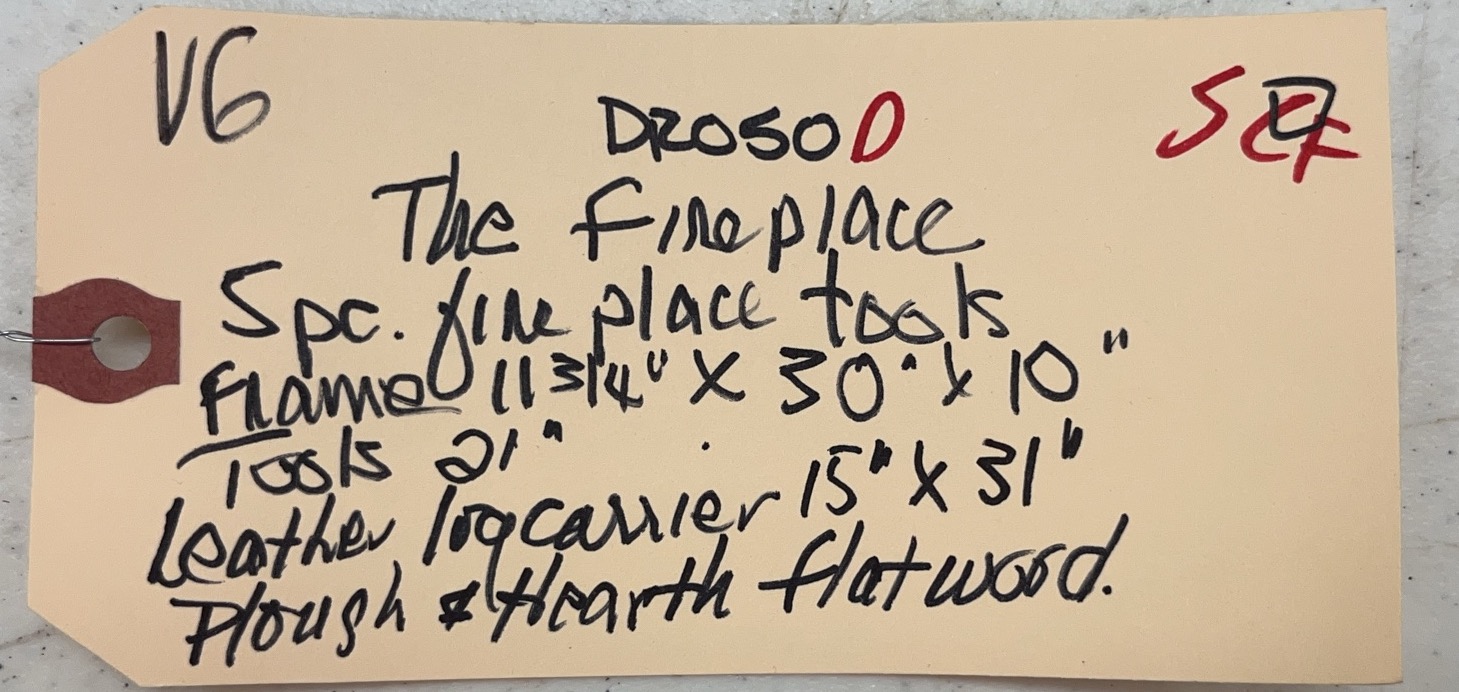 V6
DR050D
The fireplace
5 pc. fire place tools
Frame 11 3/4" X 30" x 10"
Tools 21" 15" X 31"
Leather log carrier
Plough & Hearth flatwood.